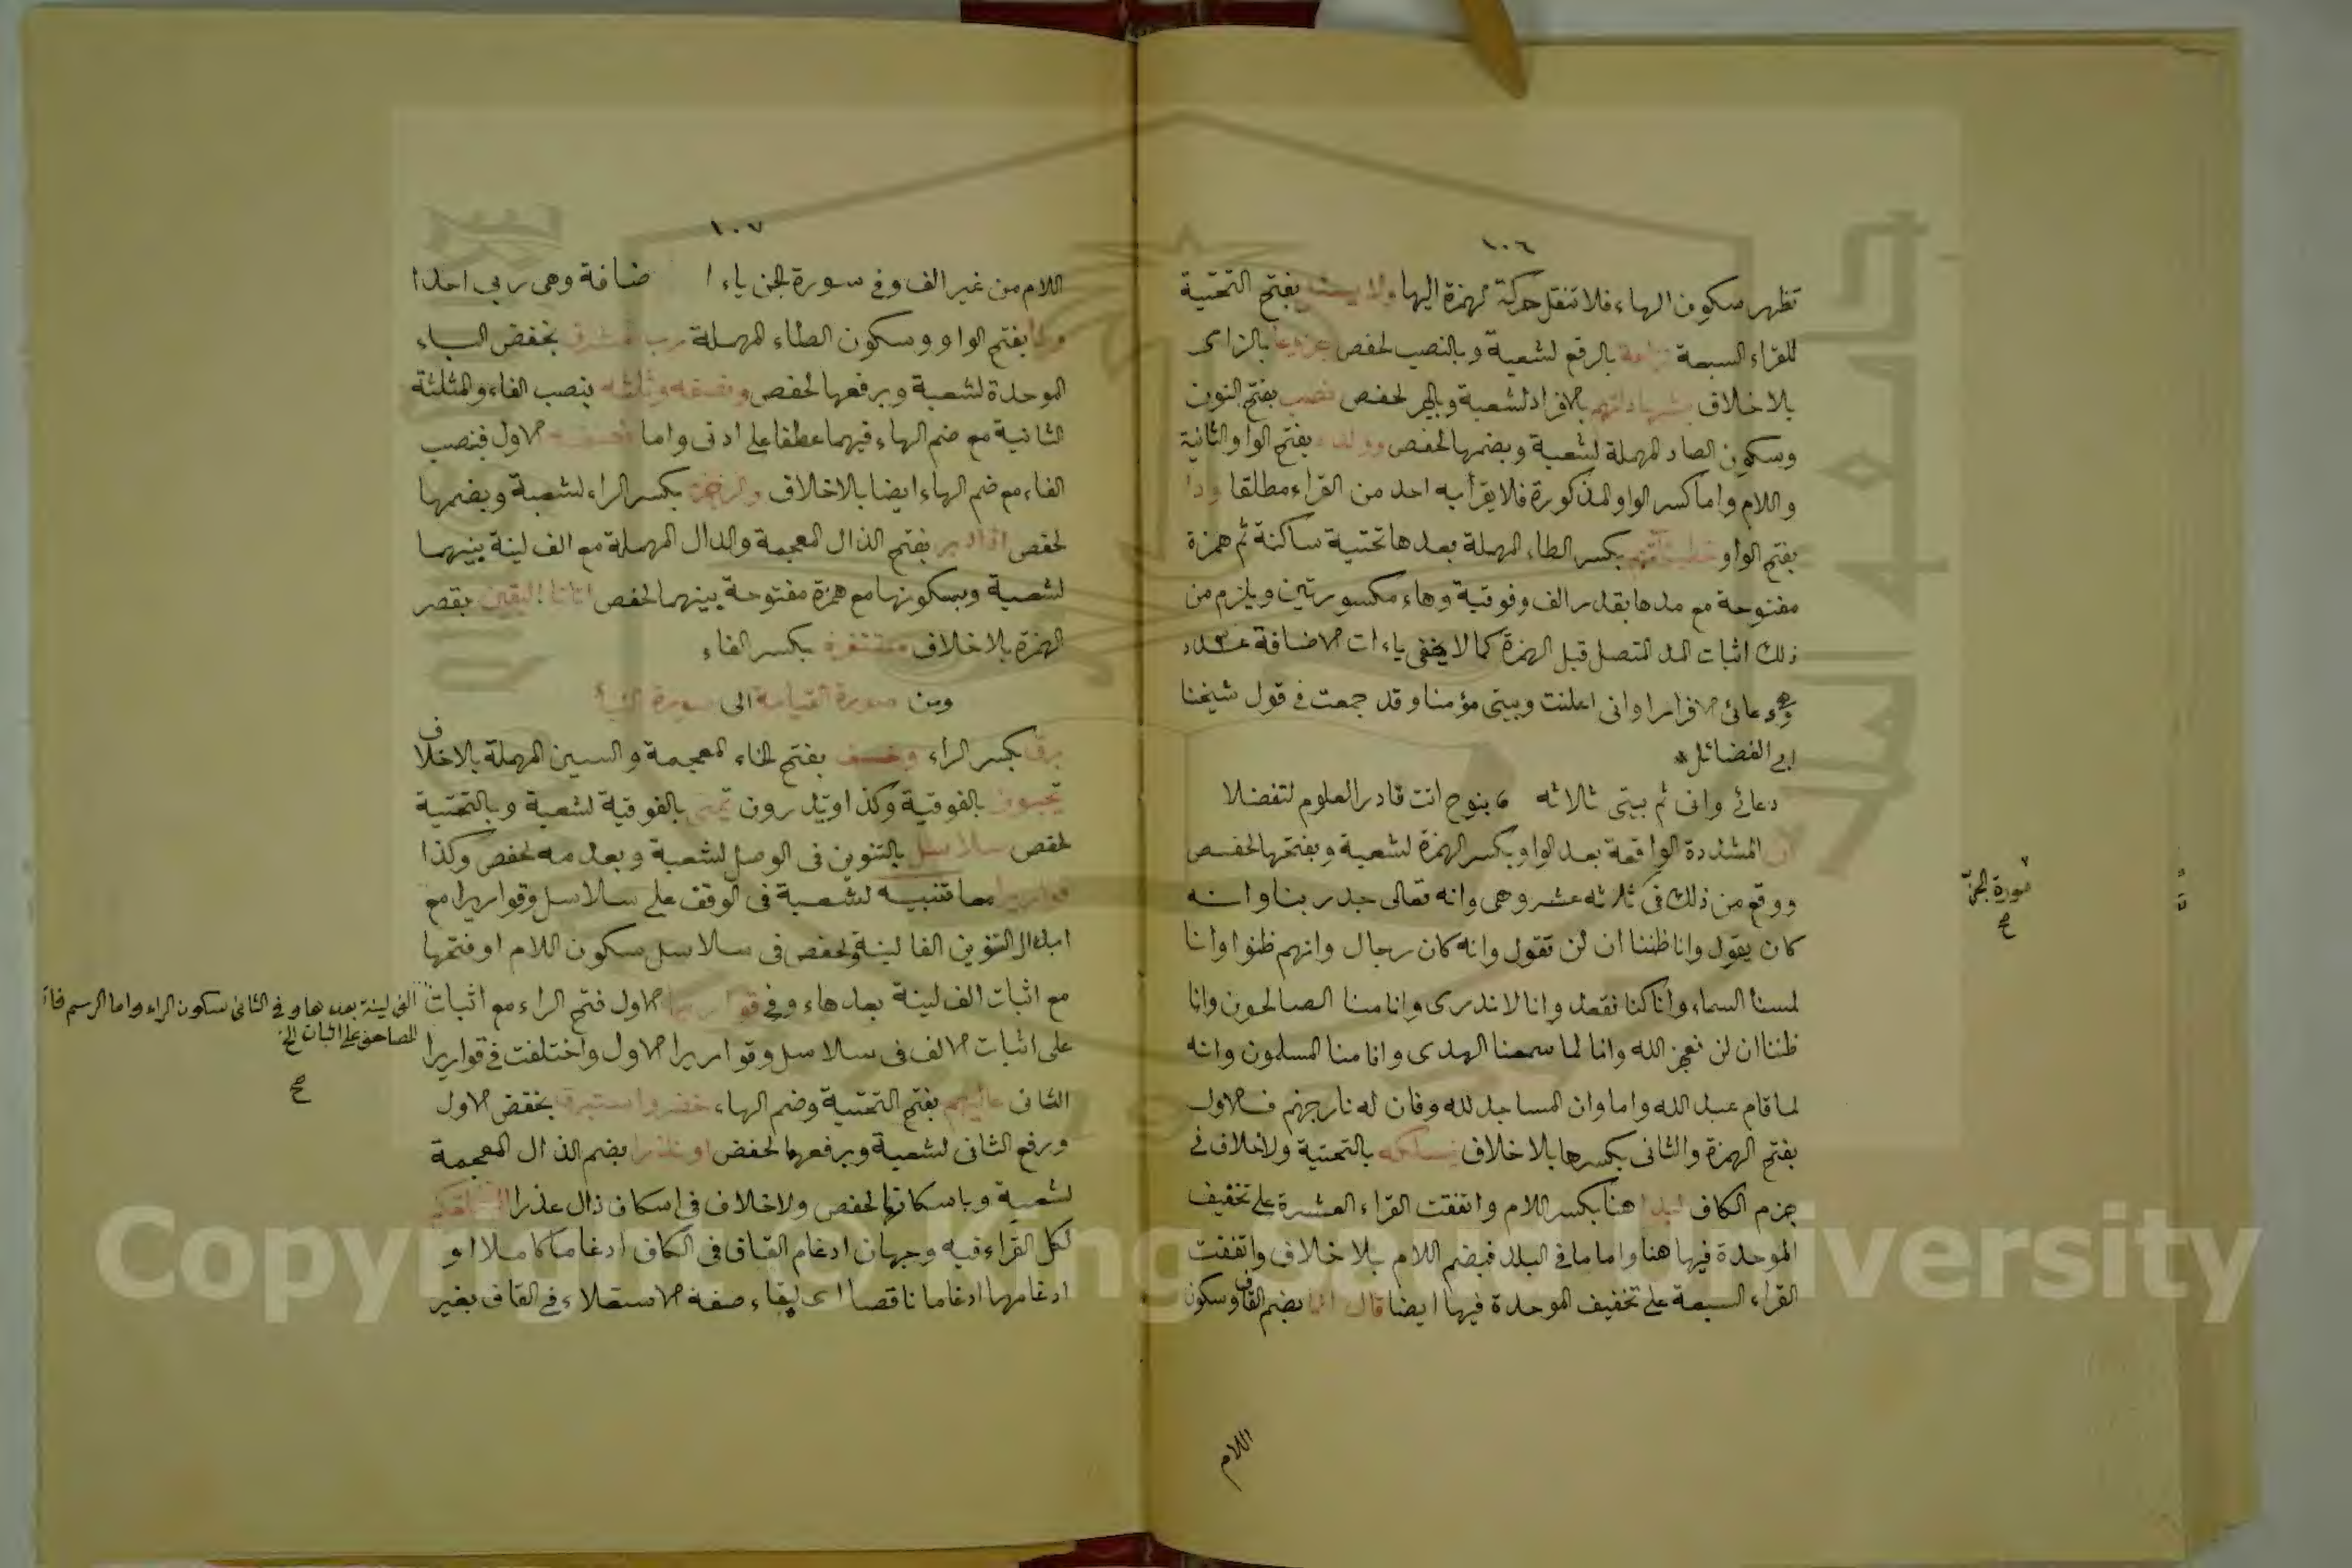 ١٠٦
تظهر سكون الهاء فلا تنقل حركة الهمزة اليها ولا يسئل بفتح التحتية
للقراء السبعة نزاعة بالرفع لشعبة وبالنصب لحفص جزوعا بالزاى
بلا خلاف بشهاداتهم بالافراد لشعبة وبالجمع لحفص نصب بفتح النون
وسكون الصاد المهملة لشعبة وبضمها لحفص وولده بفتح الواو الثانية
واللام واما كسر الواو المذكورة فلا يقرأ به احد من القراء مطلقا ودا
بفتح الواو خطيئاتهم بكسر الطاء المهملة بعدها تحتية ساكنة ثم همزة
مفتوحة مع مدها بقدر الف وفوقية وهاء مكسورتين ويلزم من
ذلك اثبات المد المتصل قبل الهمزة كما لا يخفى ياءات الاضافة
دعائى الا فرارا وانى اعلنت وبيتى مؤمنا وقد جمعت فى قول شيخنا
ابى الفضائل
دعائى وانى ثم بيتى ثلاثه بنوح انت قادر العلوم لتفضلا
ان المشددة الواقعة بعد الواو بكسر الهمزة لشعبة وبفتحها لحفص
ووقع من ذلك فى ثلاثه عشر وهى وانه تعالى جد ربنا وانه
كان يقول وانا ظننا ان لن تقول وانه كان رجال وانهم ظنوا وانا
لمسنا السماء وانا كنا نقعد وانا لا ندرى وانا منا الصالحون وانا
ظننا ان لن نعجز الله وانا لما سمعنا الهدى وانا منا المسلمون وانه
لما قام عبد الله واما وان المساجد لله وفان له نار جهنم فالاول
بفتح الهمزة والثانى بكسرها بلا خلاف يسلكه بالتحتية ولا خلاف فى
جزم الكاف لبدا هنا بكسر اللام واتفقت القراء العشرة على تخفيف
الموحدة فيها هنا واما ما فى البلد فبضم اللام بلا خلاف واتفقت
القراء السبعة على تخفيف الموحدة فيها ايضا قال انما بضم القاف وسكون
اللام
سورة الجن
صح
١٠٧
اللام من غير الف وفى سورة الجن ياء ا ضافة وهى ربى احدا
وطا بفتح الواو وسكون الطاء المهملة رب المشرق بخفض الباء
الموحدة لشعبة وبرفعها لحفص ونصفه وثلثه بنصب الفاء والمثلثة
الثانية مع ضم الهاء فيهما عطفا على ادنى واما نصفه الاول فنصب
الفاء مع ضم الهاء ايضا بلا خلاف والرجز بكسر الراء لشعبة وبضمها
لحفص اذا دبر بفتح الذال المعجمة والدال المهملة مع الف لينة بينهما
لشعبة وبسكونها مع همزة مفتوحة بينهما لحفص اتانا اليقين بقصر
الهمزة بلا خلاف مستنفرة بكسر الفاء
ومن سورة القيامة الى سورة النبأ
برق بكسر الراء وخسف بفتح الخاء المعجمة والسين المهملة بلا خلاف
تحبون بالفوقية وكذا وتذرون تمنى بالفوقية لشعبة وبالتحتية
لحفص سلاسل بالتنوين فى الوصل لشعبة وبعدمه لحفص وكذا
قواريرا معا تنبيه لشعبة فى الوقف على سلاسل وقواريرا مع
ابدال التنوين الفا لينة ولحفص فى سلاسل سكون اللام او فتحها
مع اثبات الف لينة بعدها وفى قواريرا الاول فتح الراء مع اثبات
الف لينة بعدها وفى الثانى سكون الراء واما الرسم فان
المصاحف على اثبات الخ
صح
على اثبات الالف فى سلاسل وقواريرا الاول واختلفت فى قواريرا
الثانى عاليهم بفتح التحتية وضم الهاء خضر واستبرق بخفض الاول
ورفع الثانى لشعبة وبرفعهما لحفص او نذرا بضم الذال المعجمة
لشعبة وباسكانها لحفص ولا خلاف فى اسكان ذال عذرا الم نخلقكم
لكل القراء فيه وجهان ادغام القاف فى الكاف ادغاما كاملا او
ادغامها ادغاما ناقصا اى ابقاء صفة الاستعلاء فى القاف بغير
Copyright © King Saud University